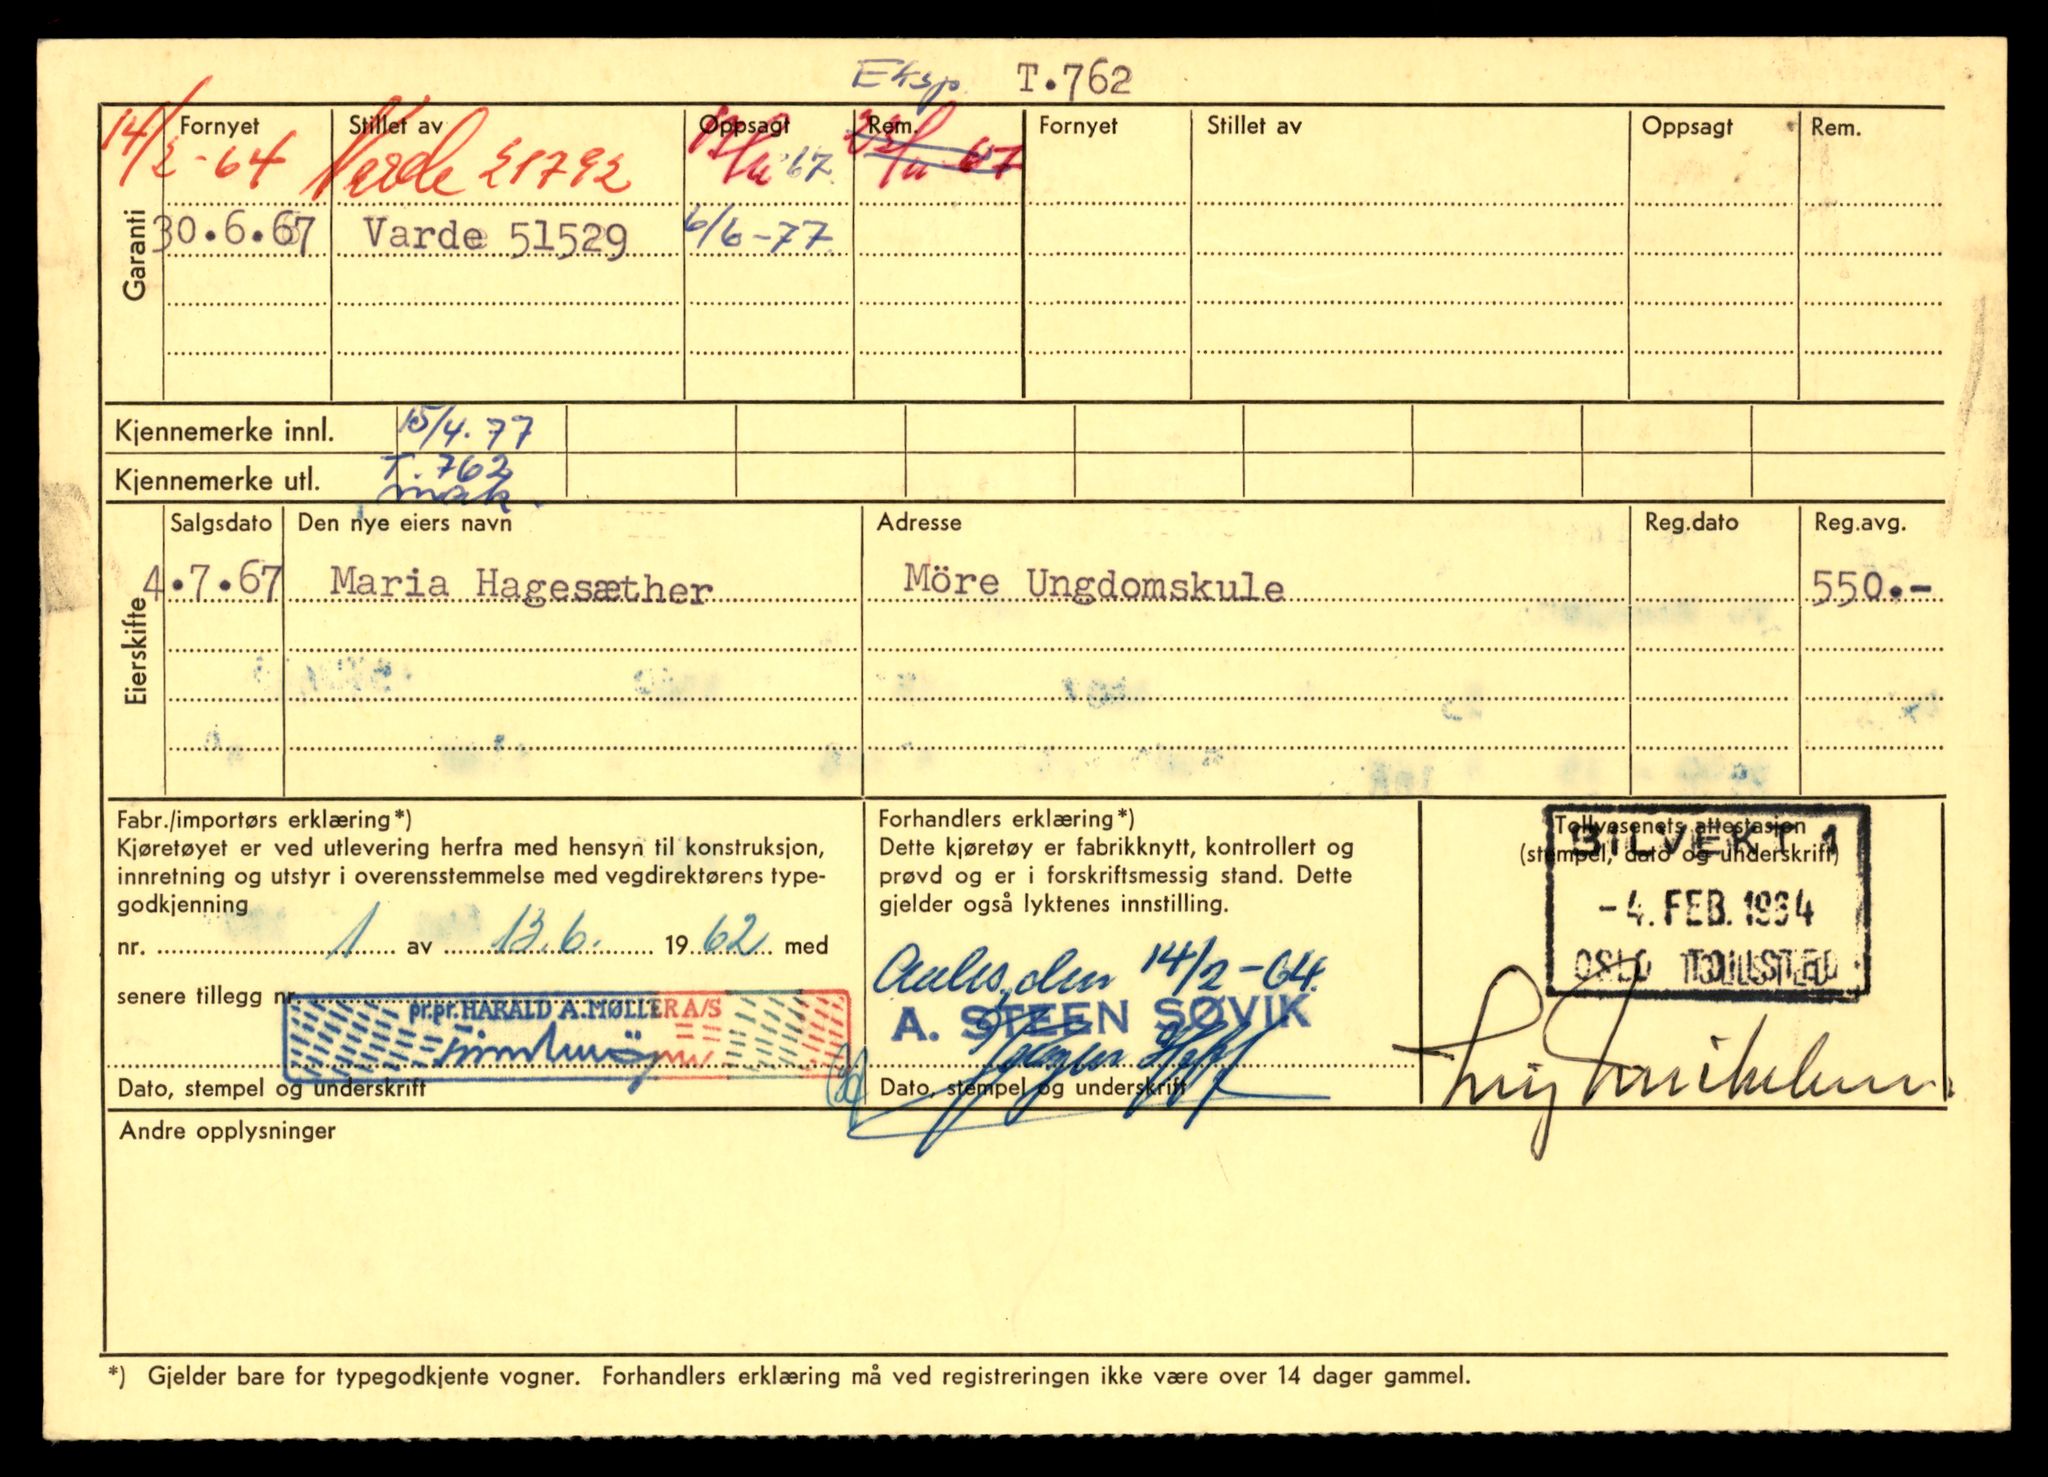 Eksp T.762
Garanti
Fornyet Stillet av Oppsagt Rem. Fornyet Stillet av Oppsagt Rem.
14/2-64 Varde 21792 67 67
30.6.67 Varde 51529 6/6-77
Kjennemerke innl. 15/4.77
Kjennemerke utl. T.762
Eierskifte
Salgsdato Den nye eiers navn Adresse Reg.dato Reg.avg.
4.7.67 Maria Hagesæther Möre Ungdomskule 550.-
Fabr./importørs erklæring*)
Kjøretøyet er ved utlevering herfra med hensyn til konstruksjon,
innretning og utstyr i overensstemmelse med vegdirektørens type-
godkjenning
nr. 1 av 13.6. 1962 med
senere tillegg nr.
pr.pr. HARALD A. MØLLER A/S
Dato, stempel og underskrift
Forhandlers erklæring*)
Dette kjøretøy er fabrikknytt, kontrollert og
prøvd og er i forskriftsmessig stand. Dette
gjelder også lyktenes innstilling.
den 14/2-64.
A. STEEN SØVIK
Dato, stempel og underskrift
Tollvesenets attestasjon
(stempel, dato og underskrift)
BILVEKT 1
-4. FEB. 1964
OSLO TOLLSTED
Andre opplysninger
*) Gjelder bare for typegodkjente vogner. Forhandlers erklæring må ved registreringen ikke være over 14 dager gammel.